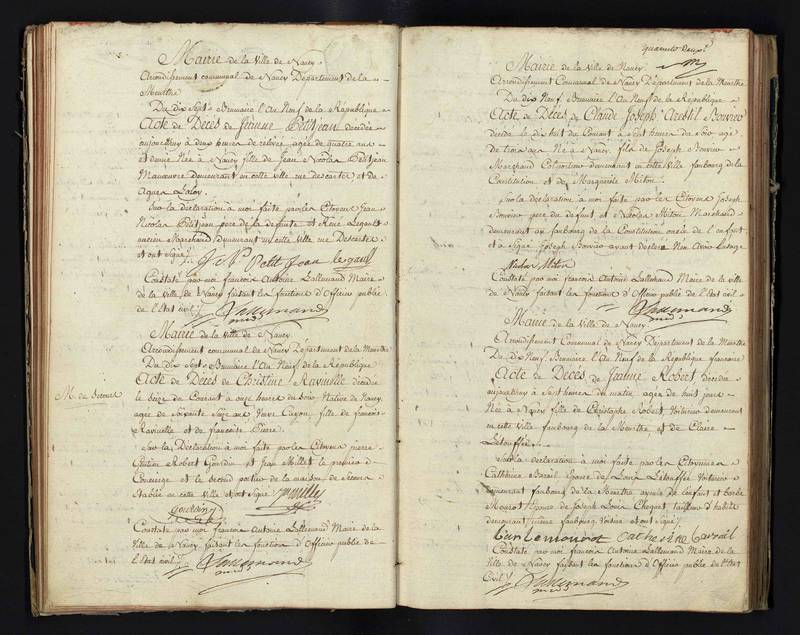 Mairie de la Ville de Nancy
Arrondissement communal de Nancy Département de la
Meurthe
Du dix Sept Brumaire l'An Neuf de la République
Acte de Décès de Jeanne Petitjean décédée
aujourd'huy à deux heures de relevée agée de quatre ans
et demie Née à Nancy fille de Jean Nicolas Petitjean
Manœuvre demeurant en cette ville rue descartes et de
Agnes Laloy.
Sur la déclaration à moi faite par les Citoyens Jean
Nicolas Petitjean pere de la défunte et René Legault
ancien Marchand demeurant en cette Ville rue Descartes
et ont signé
J N Petit Jean legault
Constaté par moi françois Antoine Lallemand Maire
de la Ville de Nancy faisant les fonctions d'Officier public
de l'Etat civil
Lallemand
Mairie de la Ville de Nancy
Arrondissement communal de Nancy Département de la Meurthe
Du dix Sept Brumaire l'An Neuf de la République
M. de Secours
Acte de Décès de Christine Ravinelle décédée
le seize du Courant à onze heures du soir Native de Nancy
agée de soixante Seize ans Veuve Cayon, fille de françois
Ravinelle et de françoise Pierre.
Sur la Déclaration à moi faite par les Citoyens pierre
Robert Gourdin et Jean Millet le premier
Concierge et le second portier de la maison de secours
Etablie en cette Ville et ont signé
gourdin
Constaté par moi françois Antoine Lallemand Maire de la
Ville de Nancy faisant les fonctions d'Officier public de
l'Etat civil
Lallemand
quarante deux
Mairie de la Ville de Nancy
Arrondissement Communal de Nancy Département de la Meurthe
Du dix Neuf Brumaire l'An Neuf de la République
Acte de Décès de Claude Joseph Bouvier
décédé le dix huit du Courant à sept heures du Soir agé
de trois ans Né à Nancy, fils de Joseph Bouvier
Marchand Colporteur demeurant en cette Ville faubourg de la
Constitution et de Marguerite Miton.
Sur la déclaration à moi faite par les Citoyens Joseph
Bouvier pere du défunt et Nicolas Miton Marchand
demeurant au faubourg de la Constitution oncle de l'enfant
et a signé Joseph Bouvier ayant déclaré N'en Avoir L'usage
Nicolas Miton
Constaté par moi françois Antoine Lallemand Maire de la ville
de Nancy faisant les fonctions d'Officier public de l'Etat civil
Lallemand
Mairie de la Ville de Nancy.
Arrondissement Communal de Nancy Département de la Meurthe
Du Dix Neuf Brumaire l'An Neuf de la République française
Acte de Décès de Jeanne Robert, décédée
aujourd'huy à sept heures du matin agée de huit jours
Née à Nancy fille de Christophe Robert Voiturier demeurant
en cette Ville faubourg de la Meurthe et de Claire
Letouffée
Sur la déclaration à moi faite par les Citoyennes
Catherine Barail Epouse de Louis Letouffée Voiturier
demeurant faubourg de la Meurthe ayeule de l'enfant et barbe
Mourot Epouse de Joseph Louis Choquet tailleur d'habits
demeurant même faubourg, Voisine et ont signé
Barbe mourot Catherine Barail
Constaté par moi françois Antoine Lallemand Maire de la
Ville de Nancy faisant les fonctions d'Officier public de l'Etat
Civil
Lallemand